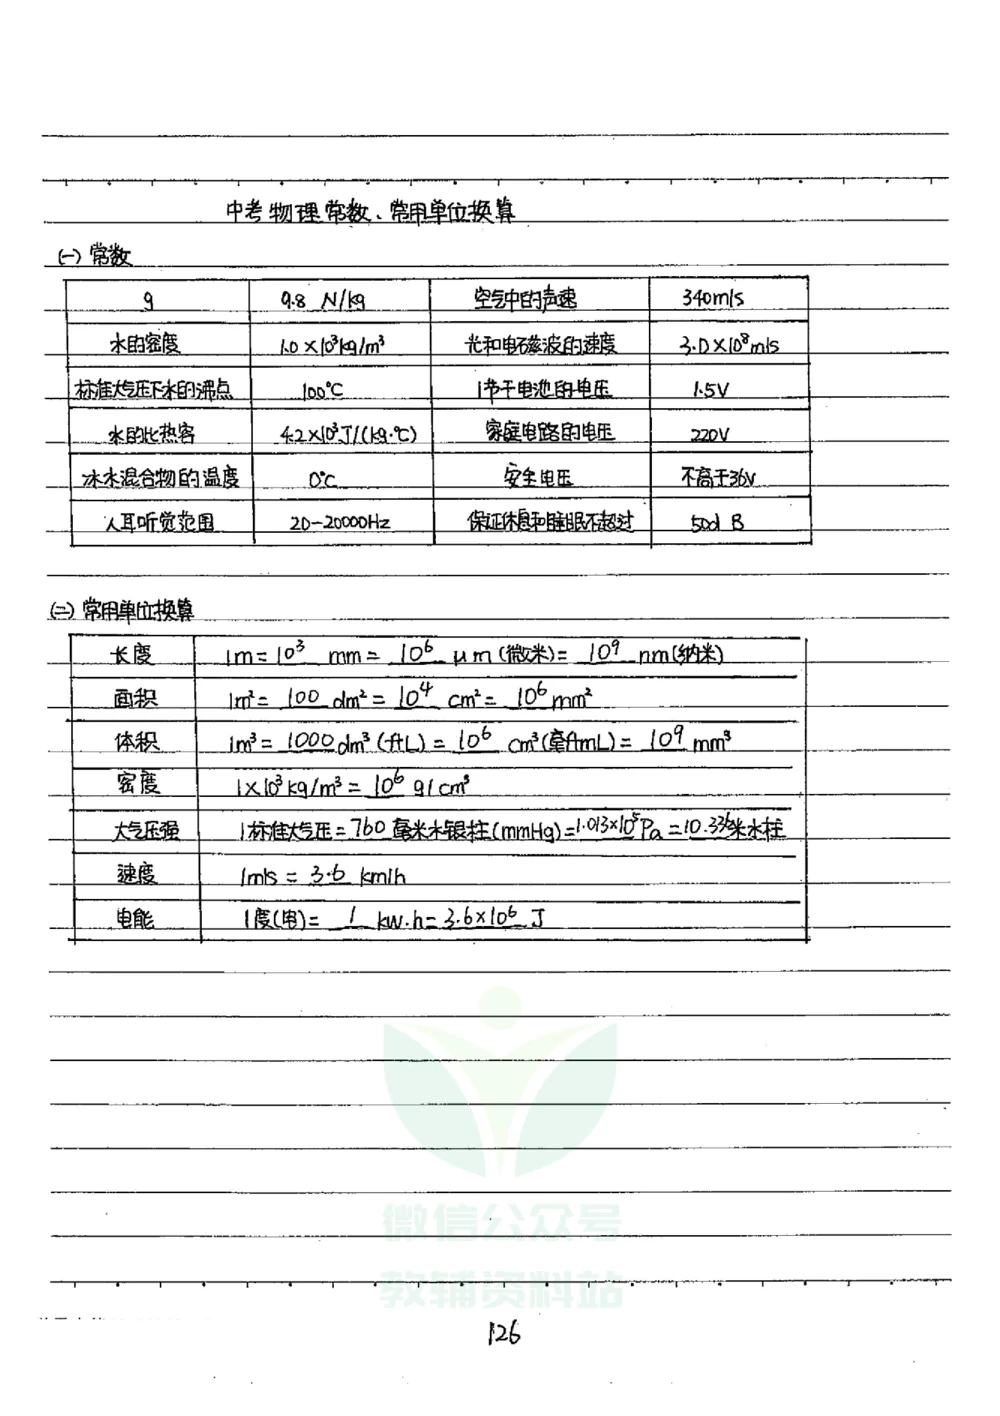 中考物理常数、常用单位换算
(一) 常数
g 9.8 N/kg 空气中的声速 340m/s
水的密度 1.0×10³kg/m³ 光和电磁波的速度 3.0×10⁸m/s
标准大气压下水的沸点 100℃ 1节干电池的电压 1.5V
水的比热容 4.2×10³J/(kg·℃) 家庭电路的电压 220V
冰水混合物的温度 0℃ 安全电压 不高于36V
人耳听觉范围 20-20000Hz 保证休息和睡眠不超过 50dB
(二) 常用单位换算
长度 1m=10³ mm=10⁶ μm(微米)=10⁹ nm(纳米)
面积 1m²=100 dm²=10⁴ cm²=10⁶mm²
体积 1m³=1000dm³(升L)=10⁶ cm³(毫升mL)=10⁹ mm³
密度 1×10³kg/m³=10⁶ g/cm³
大气压强 1标准大气压=760毫米水银柱(mmHg)=1.013×10⁵Pa=10.336米水柱
速度 1m/s=3.6 km/h
电能 1度(电)=1 kw·h=3.6×10⁶ J
微信公众号
教辅资料站
126